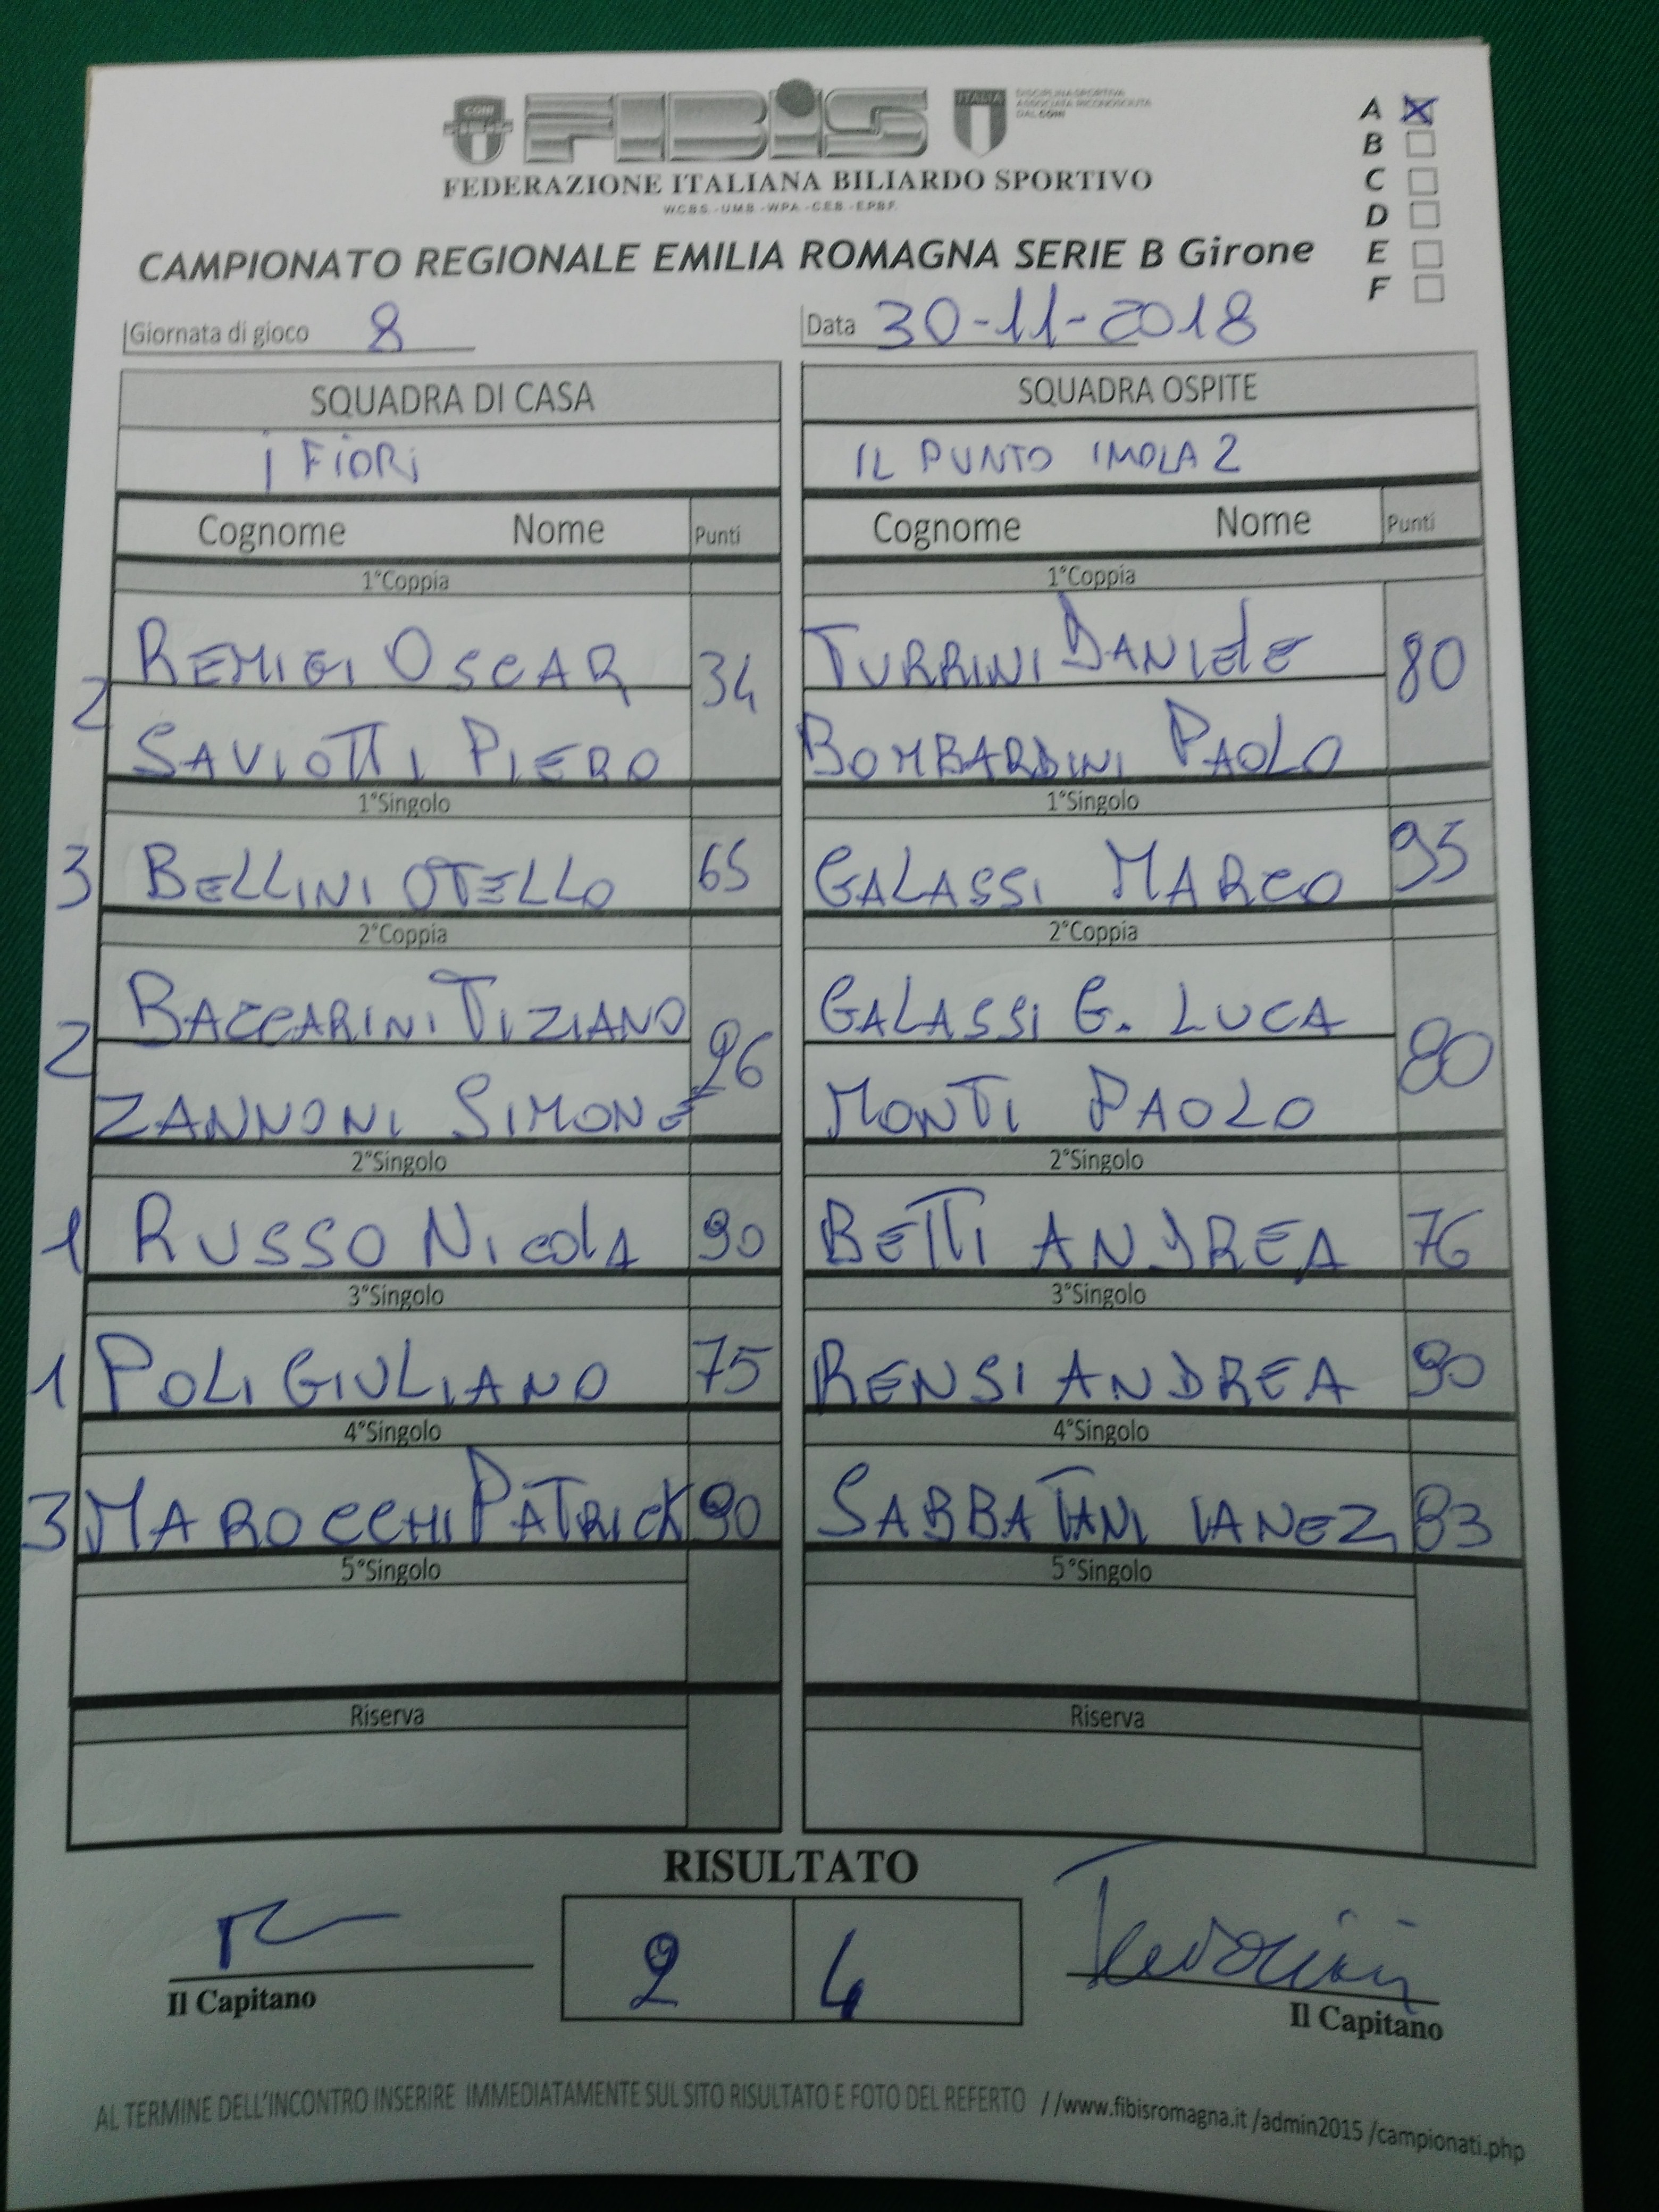 CONI
FIBiS
ITALIA
DISCIPLINA SPORTIVA
ASSOCIATA RICONOSCIUTA
DAL CONI
FEDERAZIONE ITALIANA BILIARDO SPORTIVO
W.C.B.S. - U.M.B. - W.P.A. - C.E.B. - E.P.B.F.
A X
B
C
D
E
F
CAMPIONATO REGIONALE EMILIA ROMAGNA SERIE B Girone
Giornata di gioco 8 Data 30-11-2018
SQUADRA DI CASA SQUADRA OSPITE
i FiORi IL PUNTO IMOLA 2
Cognome Nome Punti Cognome Nome Punti
1°Coppia 1°Coppia
REMIGI OSCAR TURRINI DANIELE
2 34 80
SAVIOTTI PIERO BOMBARDINI PAOLO
1°Singolo 1°Singolo
3 BELLINI OTELLO 65 GALASSI MARCO 95
2°Coppia 2°Coppia
BACCARINI TIZIANO GALASSI G. LUCA
2 80
ZANNONI SIMONE MONTI PAOLO
2°Singolo 2°Singolo
1 RUSSO NICOLA 90 BETTI ANDREA 76
3°Singolo 3°Singolo
1 POLI GIULIANO 75 RENSI ANDREA 90
4°Singolo 4°Singolo
3 MAROCCHI PATRICK 90 SABBATANI IANEZ 83
5°Singolo 5°Singolo
Riserva Riserva
RISULTATO
2 4
Il Capitano Il Capitano
AL TERMINE DELL'INCONTRO INSERIRE IMMEDIATAMENTE SUL SITO RISULTATO E FOTO DEL REFERTO //www.fibisromagna.it /admin2015 /campionati.php